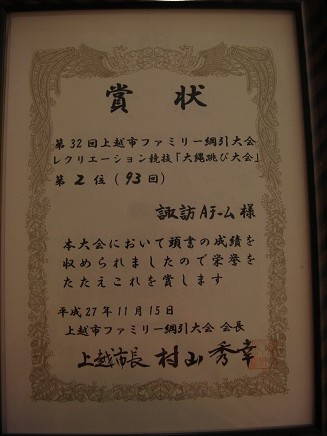 賞状
第32回上越市ファミリー綱引大会
レクリエーション競技「大縄跳び大会」
第2位(93回)
諏訪Aチーム様
本大会において頭書の成績を
収められましたので栄誉を
たたえこれを賞します
平成27年11月15日
上越市ファミリー綱引大会 会長
上越市長 村山秀幸